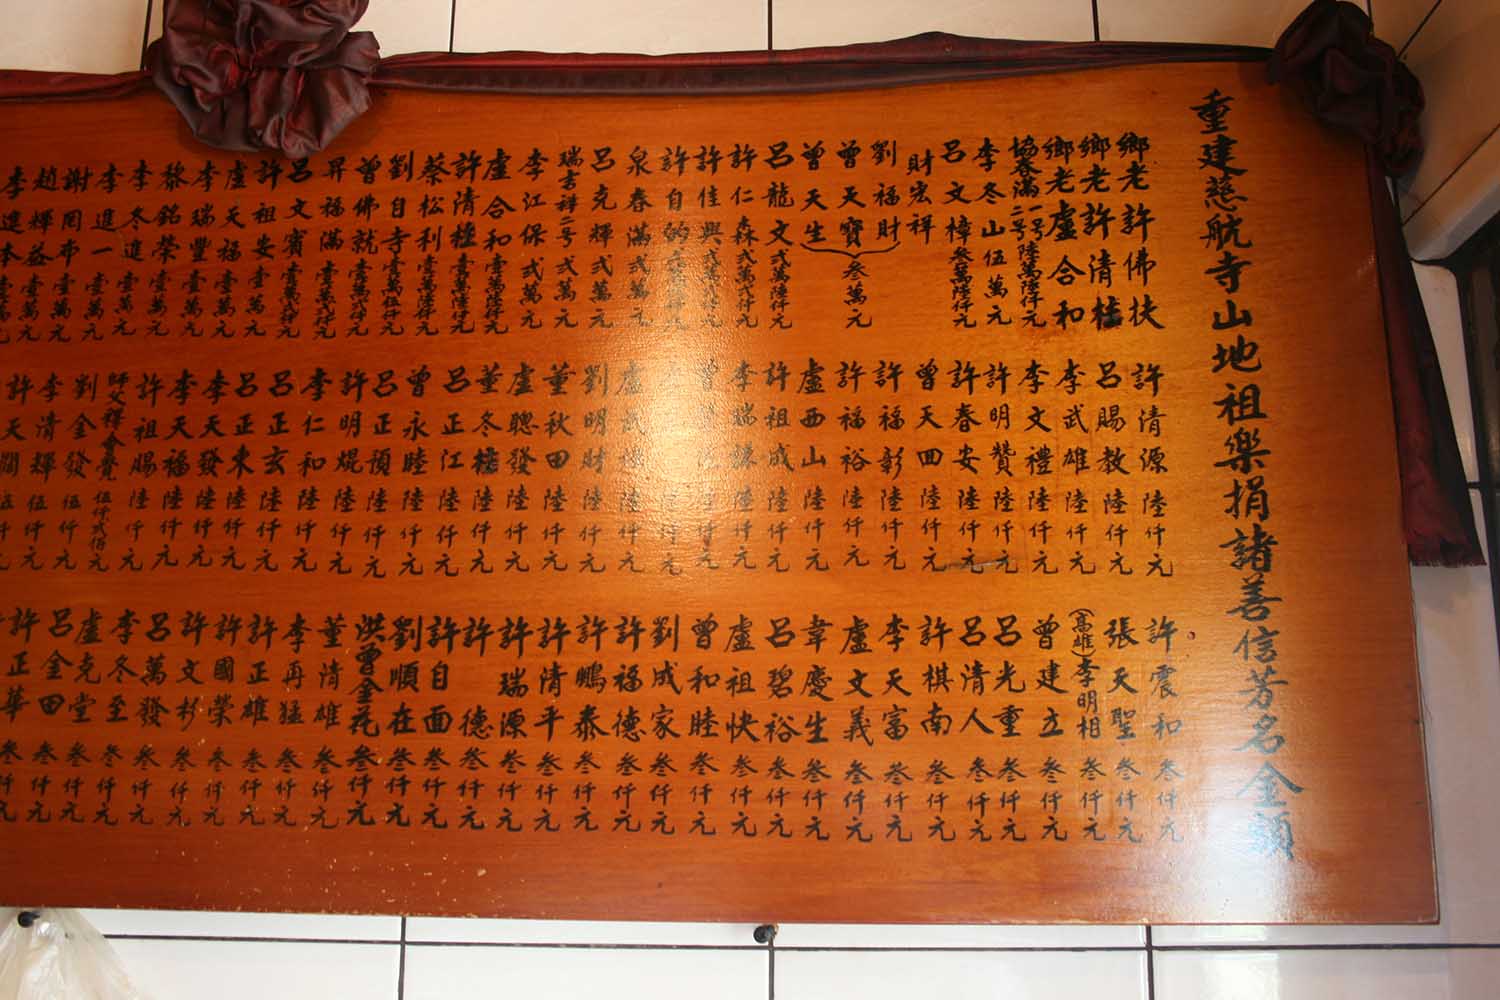 重建慈航寺山地祖樂捐諸善信芳名金額
鄉老許佛扶
鄉老許清桂
鄉老盧合和
協春滿一號二號陸萬陸仟元
李冬山伍萬元
呂文樟叁萬陸仟元
財宏祥
劉福財
曾天寶叁萬元
曾天生
呂龍文弍萬陸仟元
許仁森弍萬六仟元
許佳興
許自的
泉春滿弍萬元
呂克輝弍萬元
瑞吉祥二号弍萬元
李江保弍萬元
盧合和壹萬陸仟元
許清桂壹萬陸仟元
蔡松利壹萬陸仟元
劉自寺壹萬伍仟元
曾佛就壹萬弍仟元
昇福滿壹萬弍仟元
呂文賓壹萬弍仟元
許祖安壹萬元
盧天福壹萬元
李瑞豐壹萬元
黎銘榮壹萬元
李冬進壹萬元
李進一壹萬元
謝罔布壹萬元
趙輝益壹萬元
李進本壹萬元
許清源陸仟元
呂賜教陸仟元
李武雄陸仟元
李文禮陸仟元
許明贊陸仟元
許春安陸仟元
曾天四陸仟元
許福彰陸仟元
許福裕陸仟元
盧西山陸仟元
許祖成陸仟元
李瑞謙陸仟元
陸仟元
陸仟元
盧武陸仟元
劉明財陸仟元
董秋田陸仟元
盧聰發陸仟元
董冬桂陸仟元
呂正江陸仟元
曾永睦陸仟元
呂正預陸仟元
許明焜陸仟元
李仁和陸仟元
呂正玄陸仟元
呂正東陸仟元
李天發陸仟元
李天福陸仟元
許祖賜陸仟元
師父釋會覺伍仟弍佰元
劉金發伍仟元
李清輝伍仟元
許天闊伍仟元
許震和叁仟元
張天聖叁仟元
(高雄)李明相叁仟元
曾建立叁仟元
呂光重叁仟元
呂清人叁仟元
許棋南叁仟元
李天富叁仟元
盧文義叁仟元
韋慶生叁仟元
呂碧裕叁仟元
盧祖快叁仟元
曾和睦叁仟元
劉成家叁仟元
許福德叁仟元
許鵬泰叁仟元
許清平叁仟元
許瑞源叁仟元
許德叁仟元
許自面叁仟元
劉順在叁仟元
洪曾金花叁仟元
董清雄叁仟元
李再猛叁仟元
許正雄叁仟元
許國榮叁仟元
許文杉叁仟元
呂萬發叁仟元
李冬至叁仟元
盧克堂叁仟元
呂金田叁仟元
許正華叁仟元